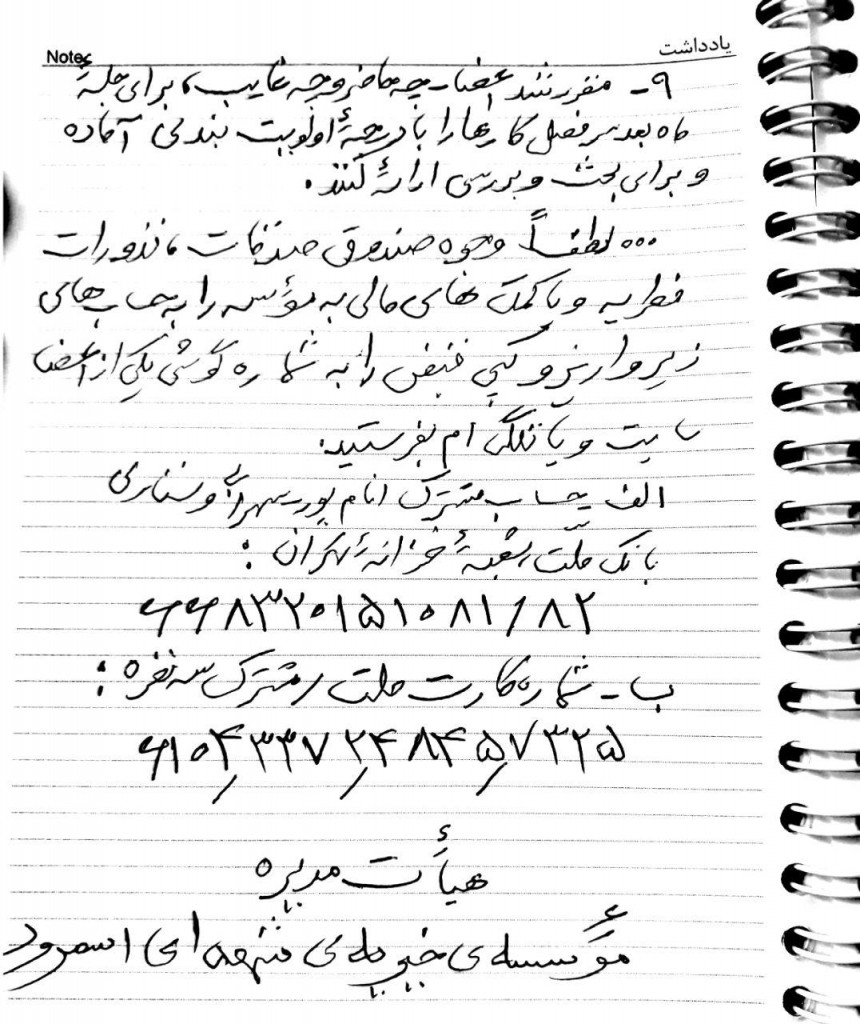 یادداشت
Notes
۹- مقرر شد اعضا، چه حاضر و چه غایب، برای جلسهٔ
ماه بعد سرفصل کارها را با درجهٔ اولویت بندی آماده
و برای بحث و بررسی ارائه کنند.
... لطفاً وجوه صندوق صدقات، نذورات
فطریه و یا کمک های مالی به مؤسسه را به حساب های
زیر واریز و کپی فیش را به شماره گوشی یکی از اعضا
سایت و یا تلگرام بفرستید.
الف - حساب مشترک امام پور سهرابی و
بانک ملّت، شعبهٔ خزانهٔ تهران :
۶۶۸۳۲۰۱۵۱۰۸۱/۸۲
ب - شماره کارت ملت مشترک سه نفره :
۶۱۰۴,۳۳۷۲,۴۸۴۵,۷۳۲۵
هیأت مدیره
مؤسسه‌ی خیریه‌ی اسمرود